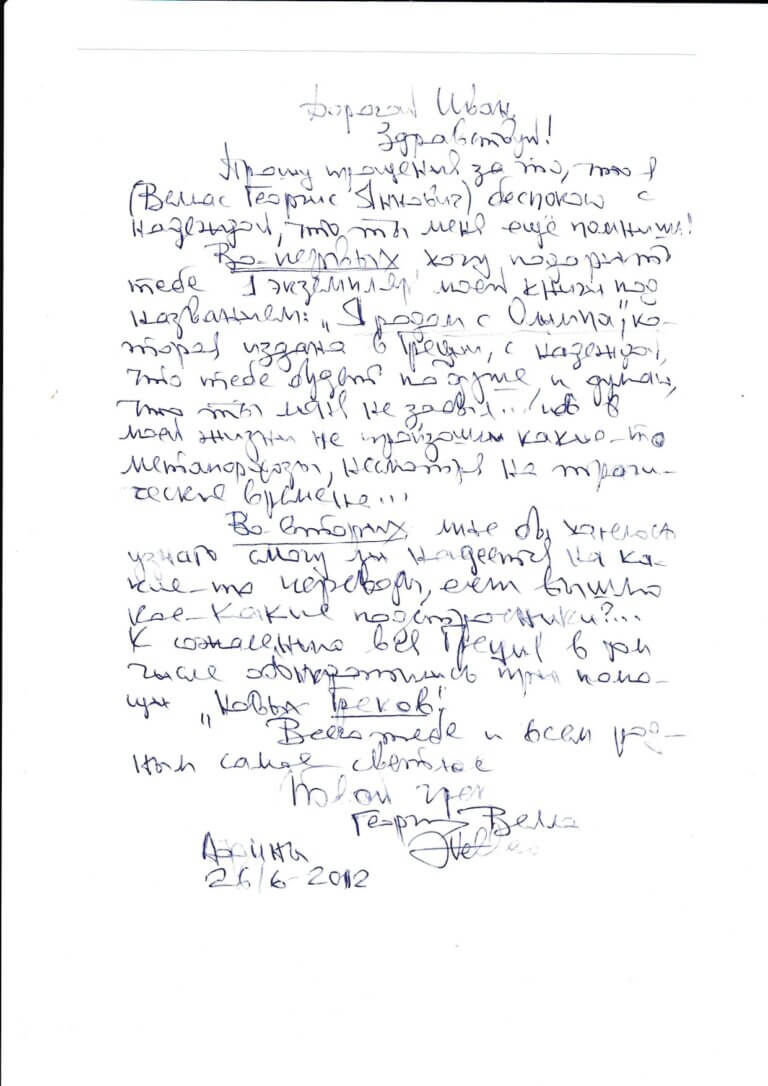 Дорогой Иван,
Здравствуй!
Прошу прощения за то, что я
(Велас Георгис Яннович) беспокою с
надеждой, что ты меня ещё помнишь!
Во-первых хочу подарить
тебе 1 экземпляр моей книги под
названием: „Я родом с Олимпа", ко-
торая издана в Греции, с надеждой,
что тебе будет по душе, и думаю,
что ты меня не забыл... в
моей жизни не произошли какие-то
метаморфозы, несмотря на траги-
ческие времена...
Во-вторых, мне бы хотелось
узнать смогу ли надеяться на ка-
кие-то переводы,
кое-какие подстрочники?...
К сожалению вся Греция в том
числе обанкротились при помо-
щи „новых греков",
Всего тебе и всем род-
ным самое светлое
Твой грек
Георгис Велас
Афины
26/6-2012